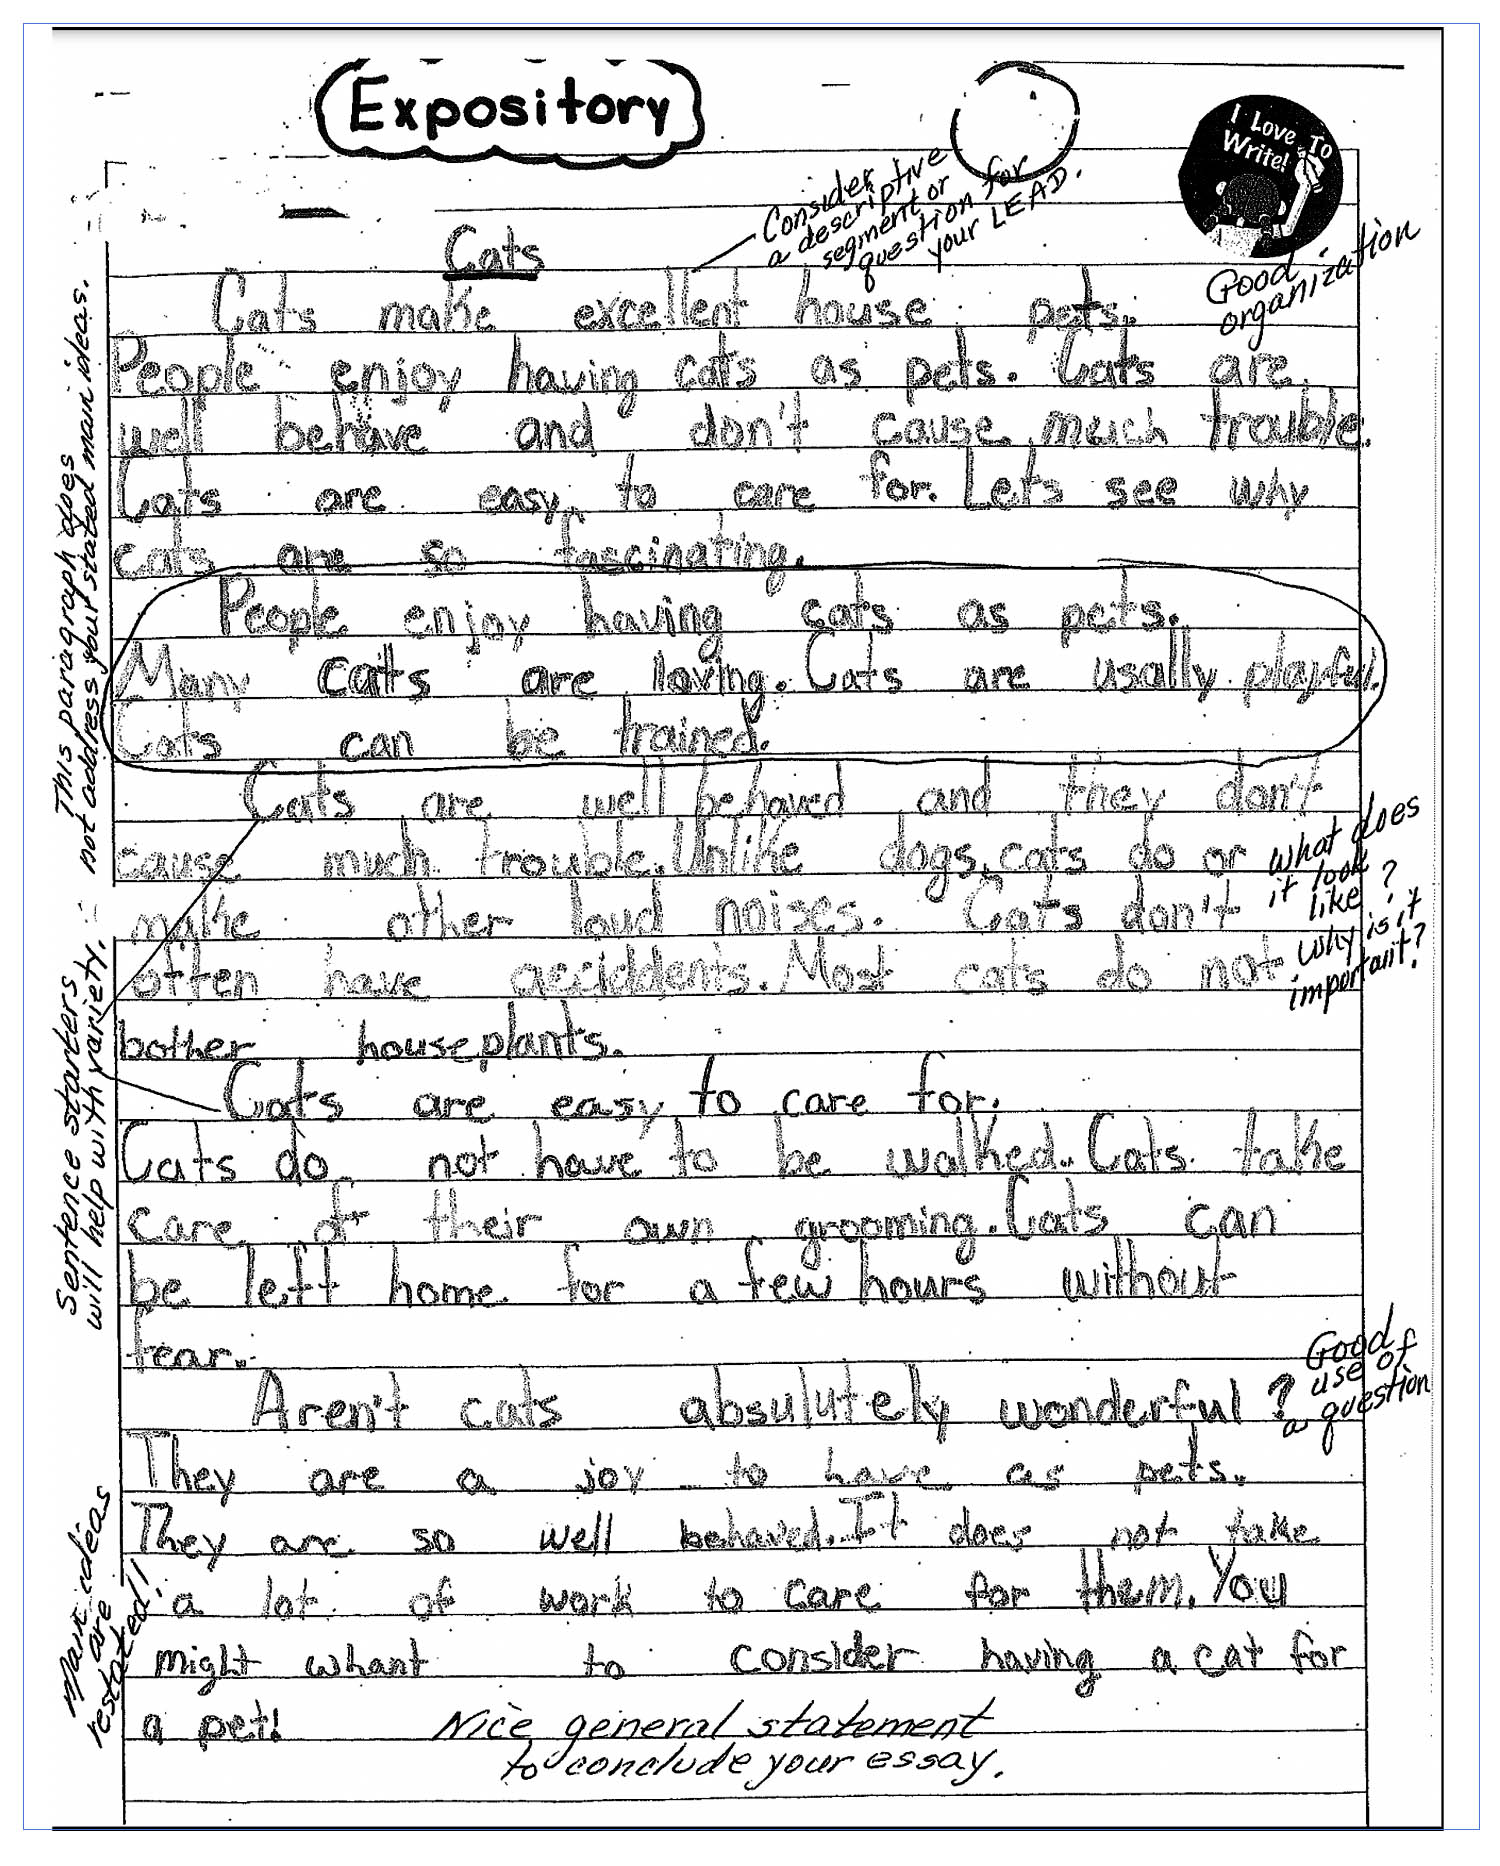 Expository
I Love To
Write!
Consider
a descriptive
segment or
question for
your LEAD.
Good
organization
Cats
Cats make excellent house pets.
People enjoy having cats as pets. Cats are
well behave and don't cause much trouble.
Cats are easy to care for. Lets see why
cats are so fascinating.
This paragraph does
not address your stated main ideas.
People enjoy having cats as pets.
Many cats are loving. Cats are usally playful.
Cats can be trained.
Cats are well behaved and they don't
cause much trouble. Unlike dogs, cats do or
make other loud noises. Cats don't
often have acciddents. Most cats do not
bother houseplants.
What does
it look
like?
Why is it
important?
Sentence starters
will help with variety.
Cats are easy to care for.
Cats do not have to be walked. Cats take
care of their own grooming. Cats can
be left home for a few hours without
fear.
Aren't cats absulutely wonderful?
Good
use of
a question
They are a joy to have as pets.
They are so well behaved. It does not take
a lot of work to care for them. You
might whant to consider having a cat for
a pet!
Main ideas
are
restated!!
Nice general statement
to conclude your essay.